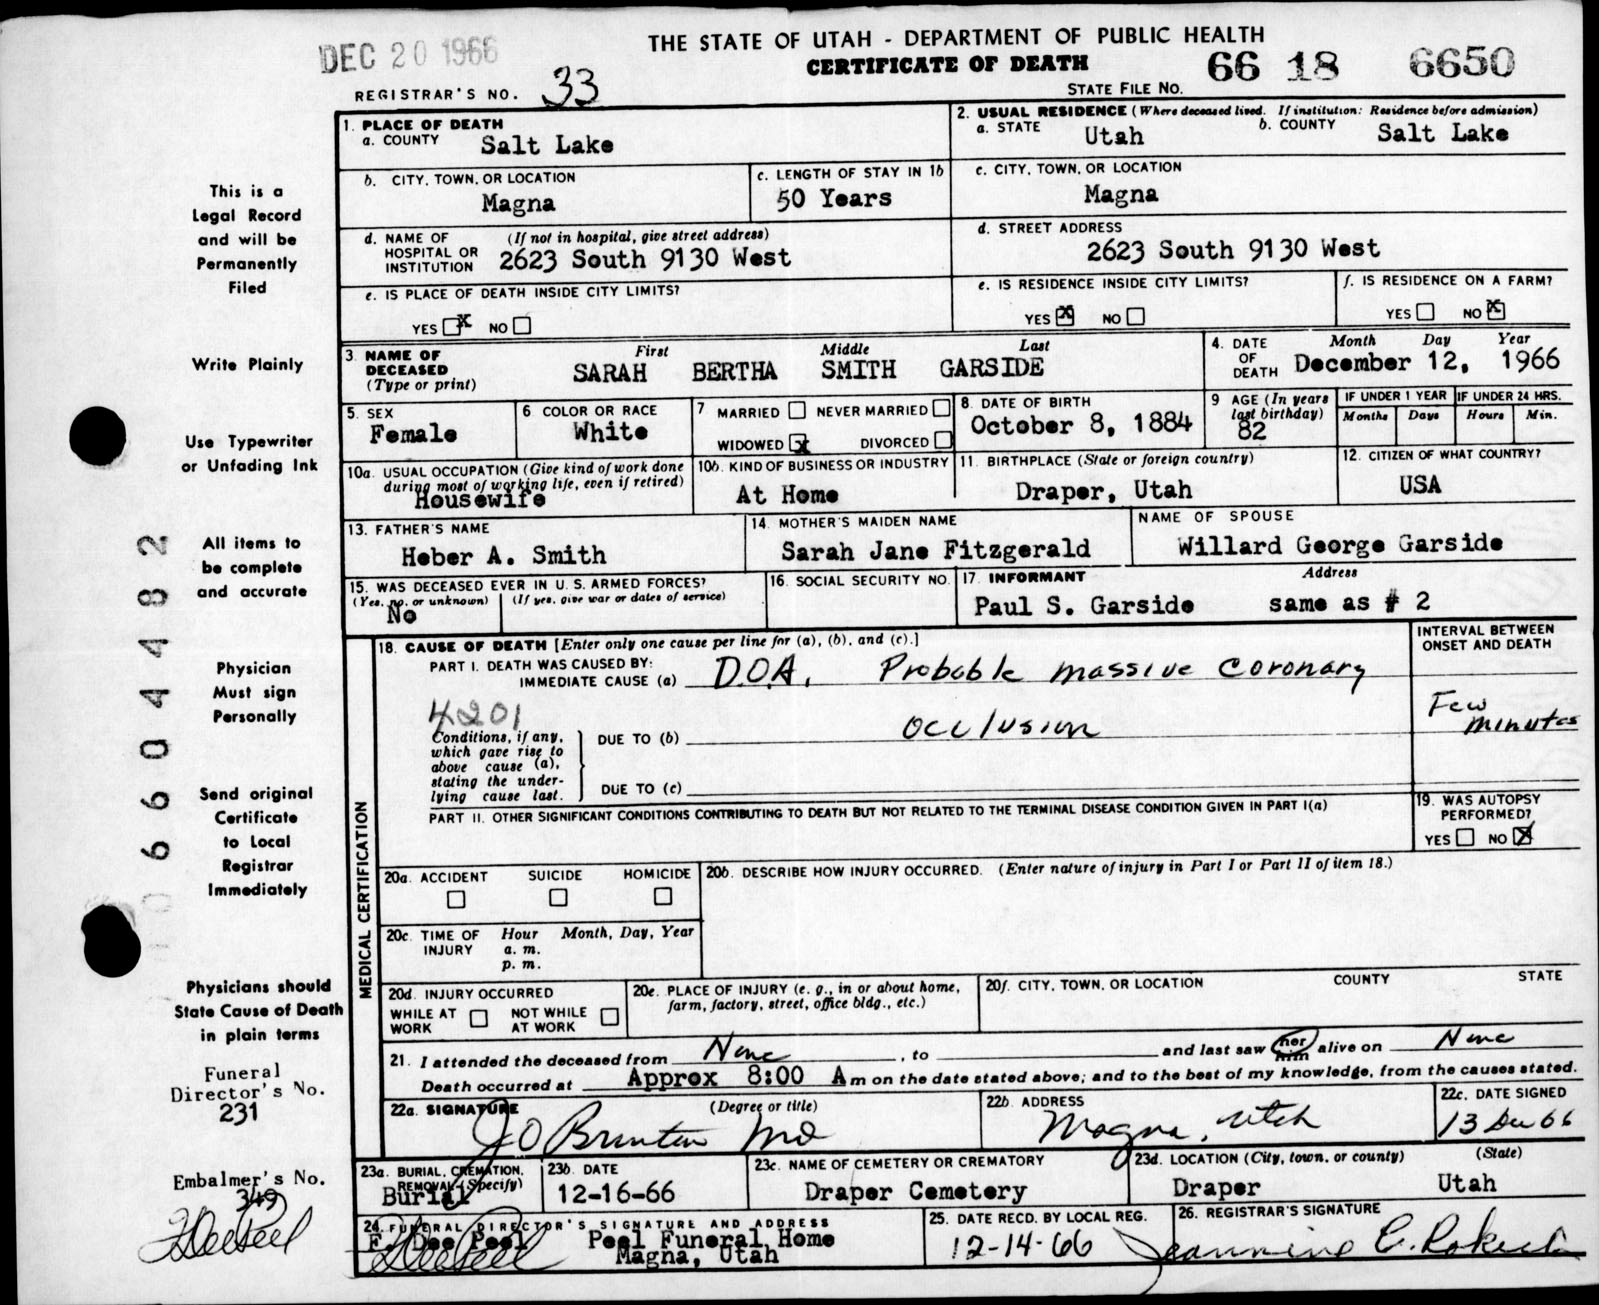 DEC 20 1966
THE STATE OF UTAH - DEPARTMENT OF PUBLIC HEALTH
CERTIFICATE OF DEATH
66 18 6650
REGISTRAR'S NO. 33
STATE FILE NO.
1. PLACE OF DEATH
a. COUNTY Salt Lake
2. USUAL RESIDENCE (Where deceased lived. If institution: Residence before admission)
a. STATE Utah b. COUNTY Salt Lake
b. CITY, TOWN, OR LOCATION
Magna
c. LENGTH OF STAY IN 1b
50 Years
c. CITY, TOWN, OR LOCATION
Magna
d. NAME OF HOSPITAL OR INSTITUTION (If not in hospital, give street address)
2623 South 9130 West
d. STREET ADDRESS
2623 South 9130 West
e. IS PLACE OF DEATH INSIDE CITY LIMITS?
YES x NO
e. IS RESIDENCE INSIDE CITY LIMITS?
YES x NO
f. IS RESIDENCE ON A FARM?
YES NO x
3. NAME OF DECEASED (Type or print)
First Middle Last
SARAH BERTHA SMITH GARSIDE
4. DATE OF DEATH
Month Day Year
December 12, 1966
5. SEX
Female
6 COLOR OR RACE
White
7 MARRIED NEVER MARRIED
WIDOWED x DIVORCED
8. DATE OF BIRTH
October 8, 1884
9 AGE (In years last birthday)
82
IF UNDER 1 YEAR
Months Days
IF UNDER 24 HRS.
Hours Min.
10a. USUAL OCCUPATION (Give kind of work done during most of working life, even if retired)
Housewife
10b. KIND OF BUSINESS OR INDUSTRY
At Home
11. BIRTHPLACE (State or foreign country)
Draper, Utah
12. CITIZEN OF WHAT COUNTRY?
USA
13. FATHER'S NAME
Heber A. Smith
14. MOTHER'S MAIDEN NAME
Sarah Jane Fitzgerald
NAME OF SPOUSE
Willard George Garside
15. WAS DECEASED EVER IN U.S. ARMED FORCES?
(Yes, no, or unknown) (If yes, give war or dates of service)
No
16. SOCIAL SECURITY NO.
17. INFORMANT Address
Paul S. Garside same as # 2
18. CAUSE OF DEATH [Enter only one cause per line for (a), (b), and (c).]
INTERVAL BETWEEN ONSET AND DEATH
PART I. DEATH WAS CAUSED BY:
IMMEDIATE CAUSE (a) D.O.A. Probable massive coronary
4201
Conditions, if any, which gave rise to above cause (a), stating the underlying cause last.
DUE TO (b) occlusion
Few minutes
DUE TO (c)
PART II. OTHER SIGNIFICANT CONDITIONS CONTRIBUTING TO DEATH BUT NOT RELATED TO THE TERMINAL DISEASE CONDITION GIVEN IN PART I(a)
19. WAS AUTOPSY PERFORMED?
YES NO X
MEDICAL CERTIFICATION
20a. ACCIDENT SUICIDE HOMICIDE
20b. DESCRIBE HOW INJURY OCCURRED. (Enter nature of injury in Part I or Part II of item 18.)
20c. TIME OF INJURY Hour Month, Day, Year
a. m.
p. m.
20d. INJURY OCCURRED
WHILE AT WORK NOT WHILE AT WORK
20e. PLACE OF INJURY (e. g., in or about home, farm, factory, street, office bldg., etc.)
20f. CITY, TOWN, OR LOCATION COUNTY STATE
21. I attended the deceased from None , to and last saw her him alive on None
Death occurred at Approx 8:00 A m on the date stated above; and to the best of my knowledge, from the causes stated.
22a. SIGNATURE (Degree or title)
J O Brunton MD
22b ADDRESS
Magna, Utah
22c. DATE SIGNED
13 Dec 66
23a. BURIAL, CREMATION, REMOVAL (Specify)
Burial
23b. DATE
12-16-66
23c. NAME OF CEMETERY OR CREMATORY
Draper Cemetery
23d. LOCATION (City, town, or county) (State)
Draper Utah
24. FUNERAL DIRECTOR'S SIGNATURE AND ADDRESS
F. Dee Peel Peel Funeral Home
Magna, Utah
25. DATE RECD. BY LOCAL REG.
12-14-66
26. REGISTRAR'S SIGNATURE
Jeannine E.
This is a
Legal Record
and will be
Permanently
Filed
Write Plainly
Use Typewriter
or Unfading Ink
All items to
be complete
and accurate
Physician
Must sign
Personally
Send original
Certificate
to Local
Registrar
Immediately
Physicians should
State Cause of Death
in plain terms
Funeral
Director's No.
231
Embalmer's No.
349
F Dee Peel
06604482